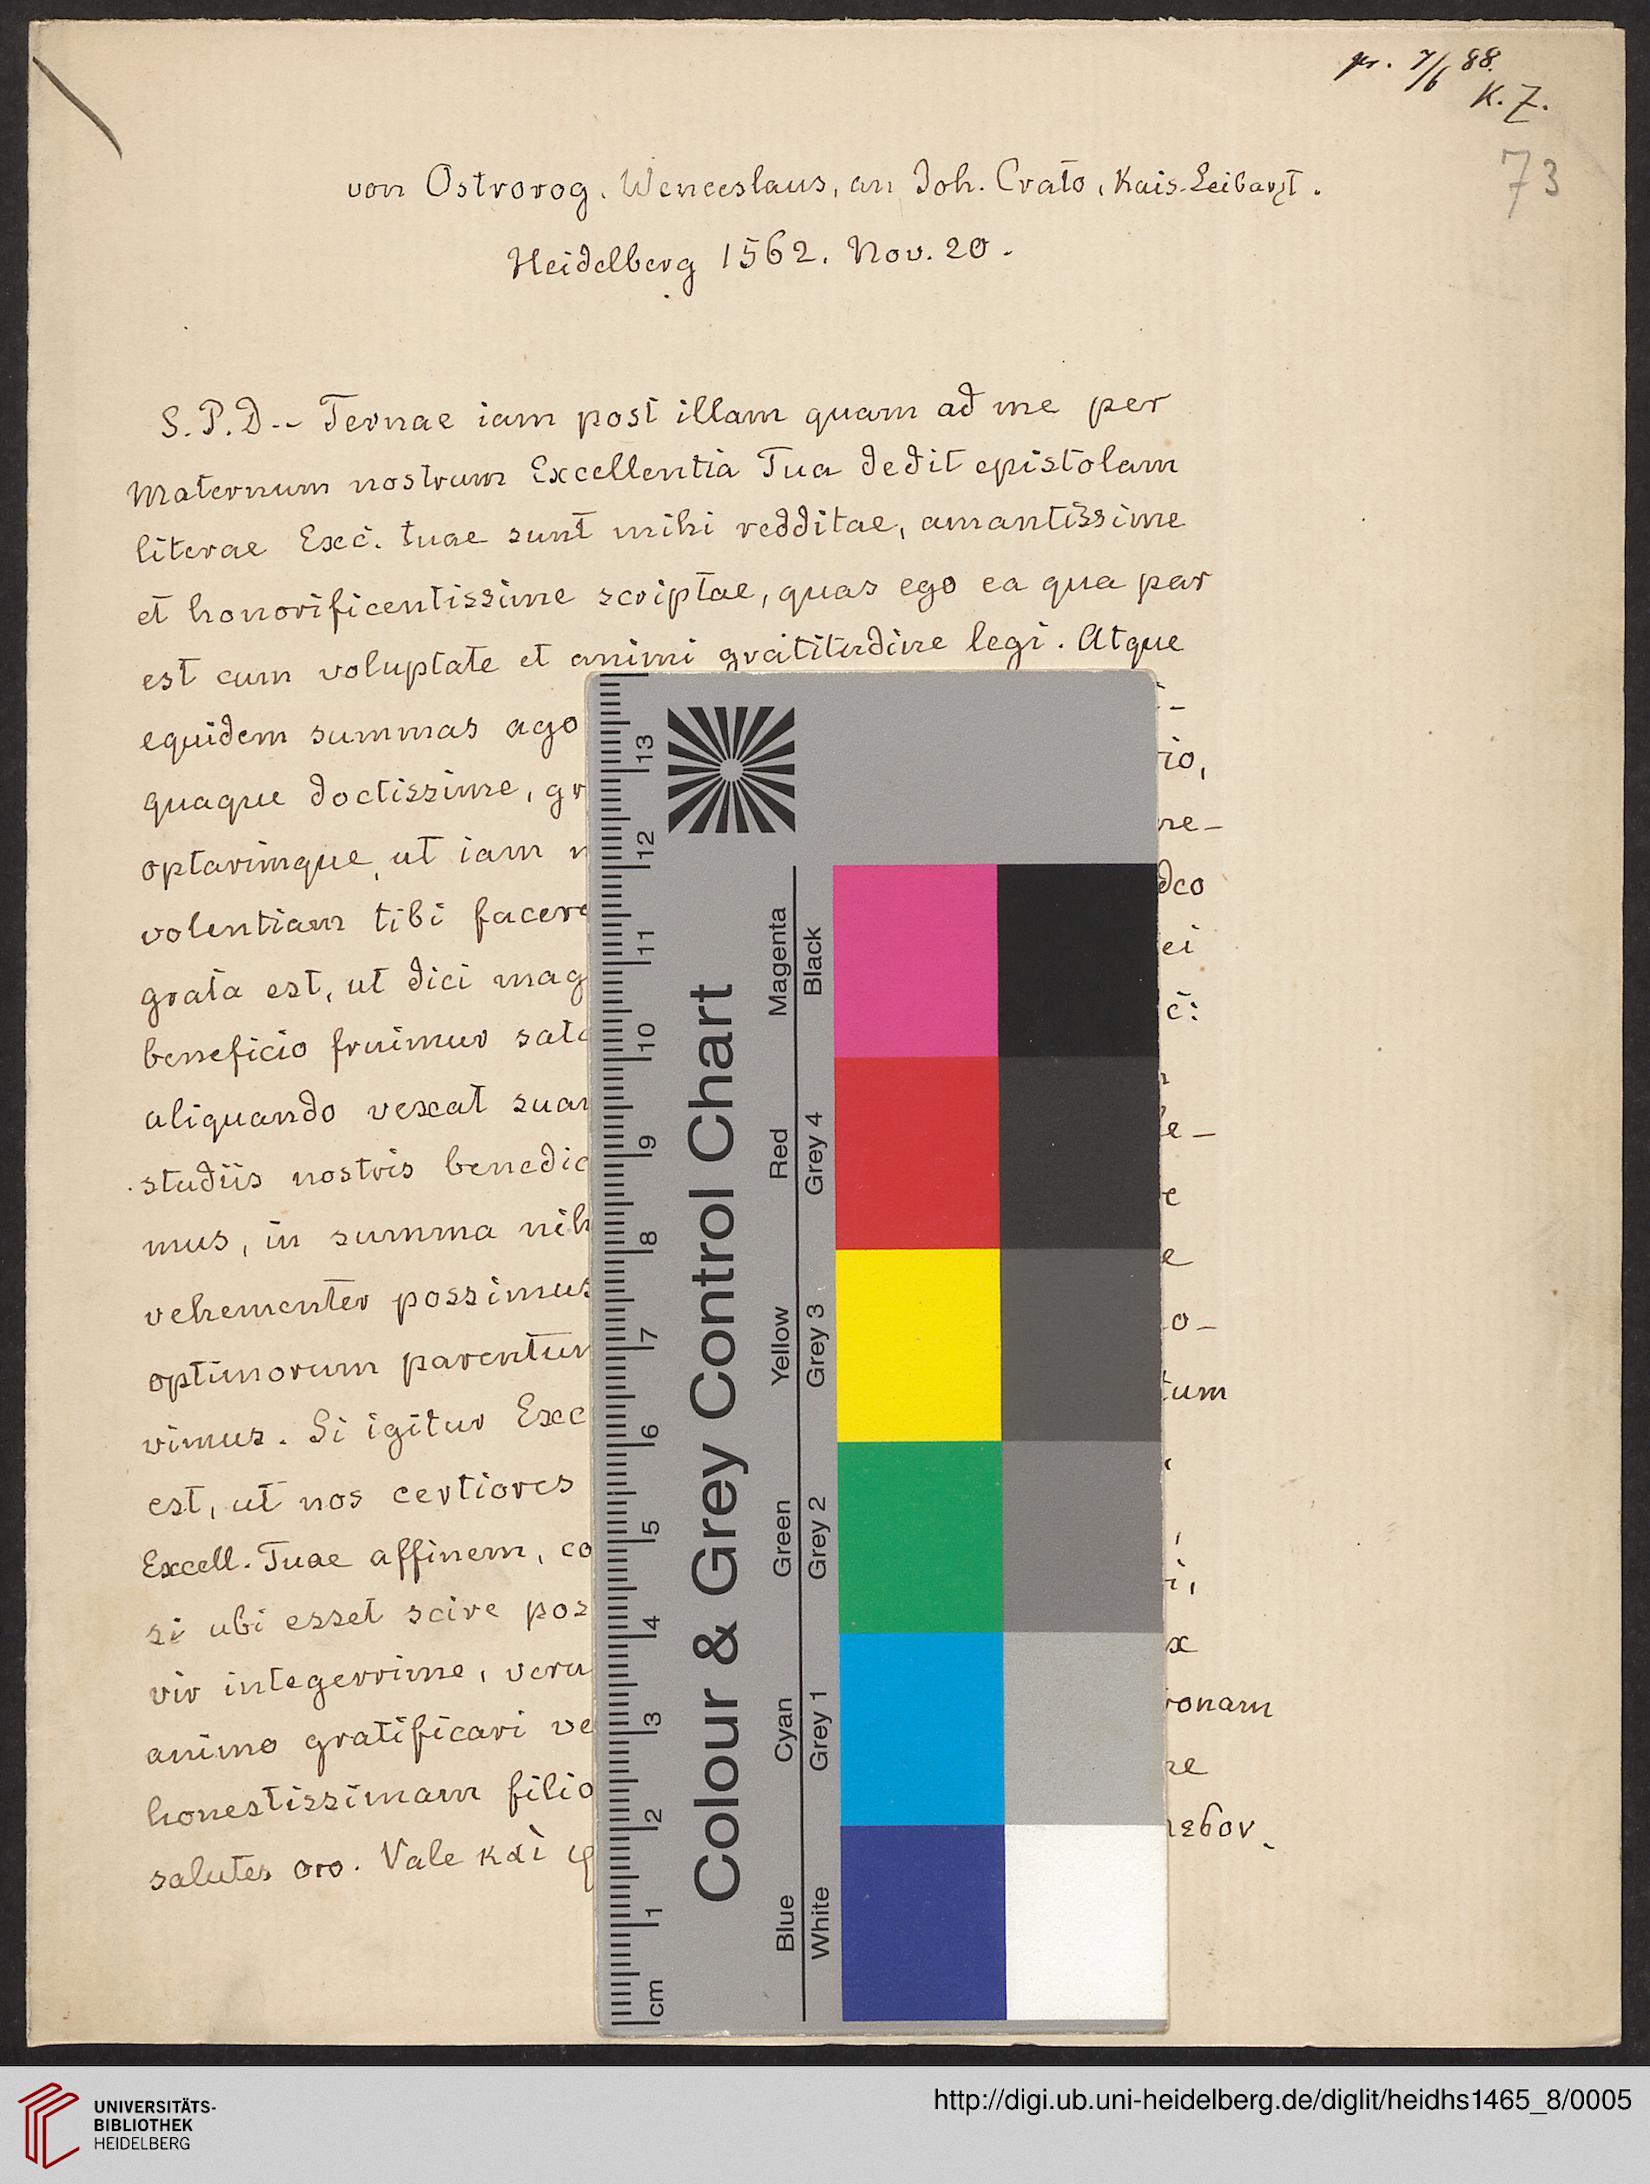 pr. 7/6 88.
K. Z.
73
von Ostrorog, Wenceslaus, an Joh. Crato, Kais. Leibarzt.
Heidelberg 1562. Nov. 20.
S. P. D. -- Ternae iam post illam quam ad me per
Maternum nostrum Excellentia Tua dedit epistolam
literae Exc. tuae sunt mihi redditae, amantissime
et honorificentissime scriptae, quas ego ea qua par
est cum voluptate et animi gratitudine legi. Atque
equidem summas ago
quaque doctissime, gr
io,
optarimque, ut iam
ne-
volentiam tibi facere
deo
grata est, ut dici mag
ei
beneficio fruimur sat
c:
aliquando vexat suar
studiis nostris benedic
le-
mus, in summa nih
e
vehementer possimus
e
optimorum parentum
o-
vimus. Si igitur Exc
tum
est, ut nos certiores
Excell. Tuae affinem, co
si ubi esset scire pos
i,
vir integerrime, veru
x
animo gratificari ve
ronam
honestissimam filio
ne
salutes oro. Vale καὶ
Colour & Grey Control Chart
Magenta
Black
Red
Grey 4
Yellow
Grey 3
Green
Grey 2
Cyan
Grey 1
Blue
White
13
12
11
10
9
8
7
6
5
4
3
2
1
cm
UNIVERSITÄTS-
BIBLIOTHEK
HEIDELBERG
http://digi.ub.uni-heidelberg.de/diglit/heidhs1465_8/0005